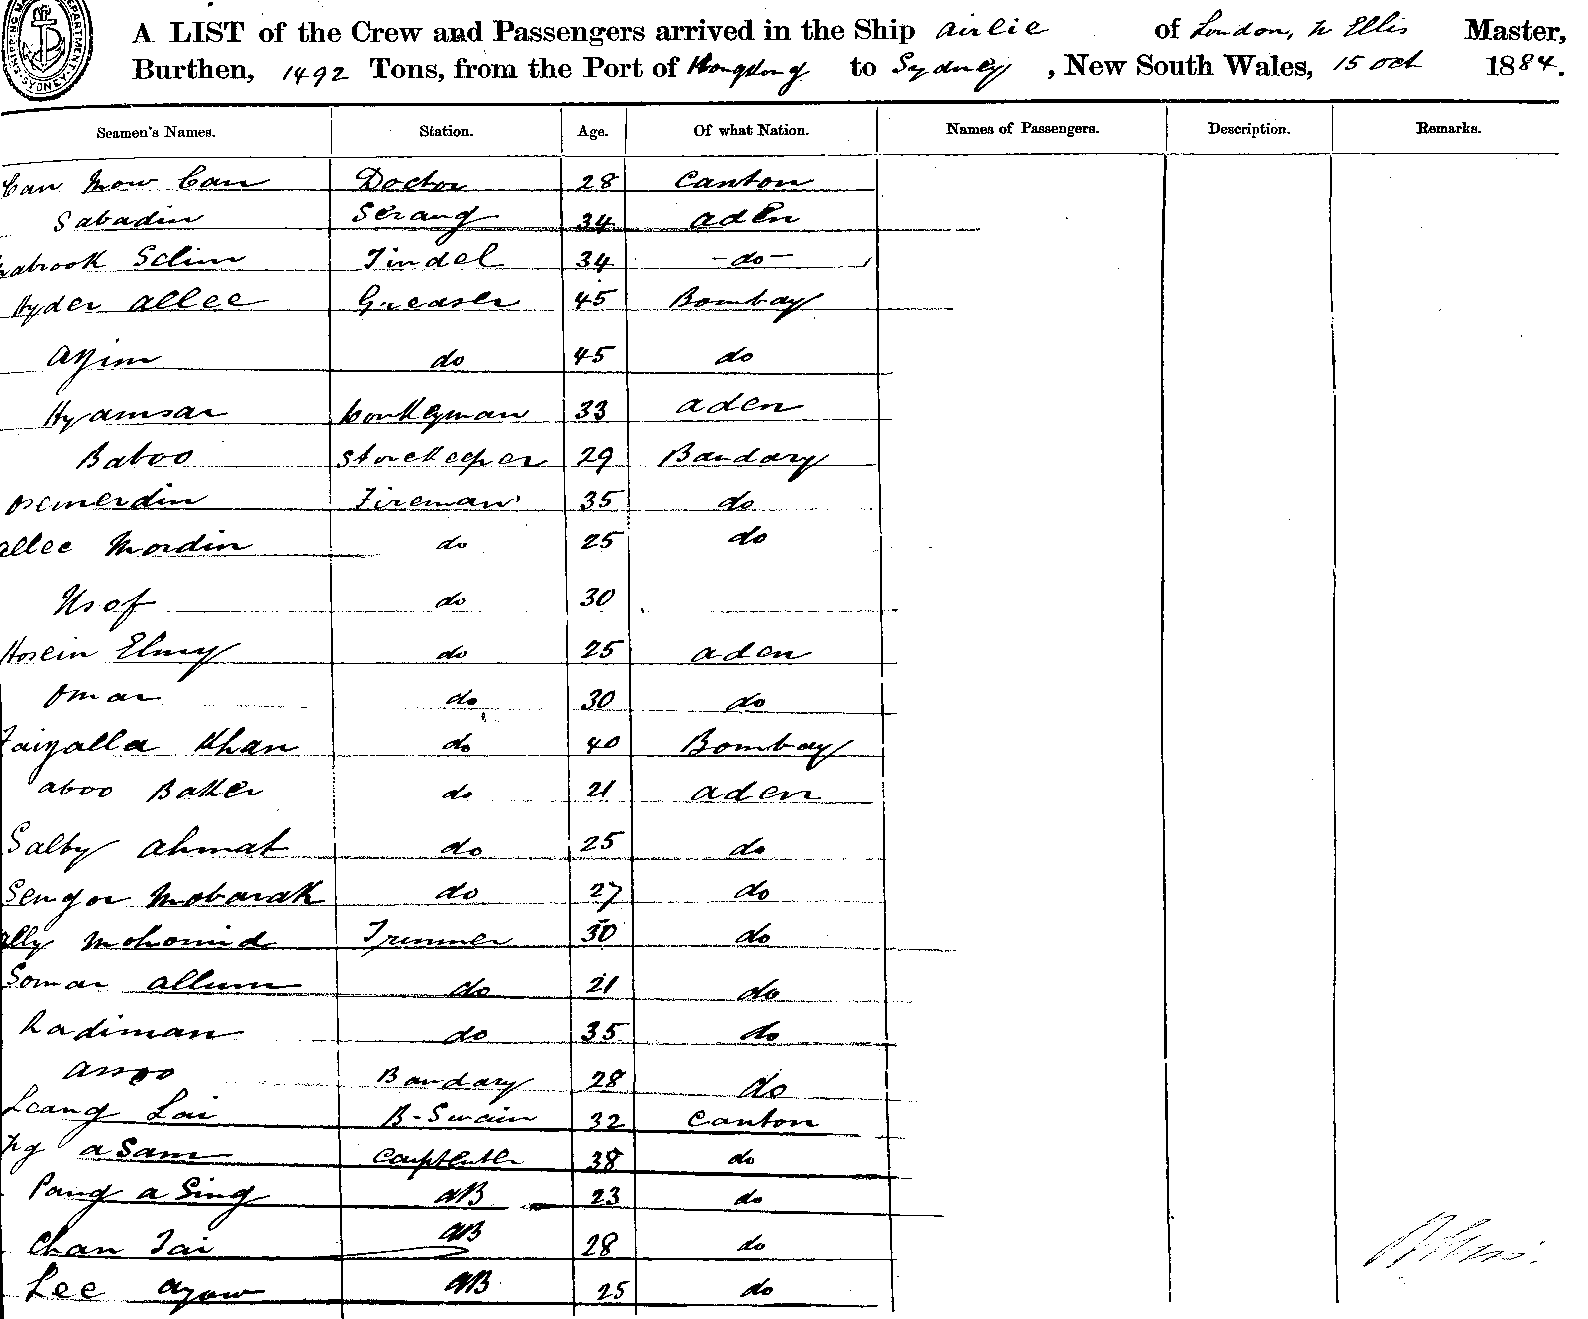 A LIST of the Crew and Passengers arrived in the Ship Airlie of London, W Ellis Master,
Burthen, 1492 Tons, from the Port of Hongkong to Sydney, New South Wales, 15 Oct 1884.
Seamen's Names. Station. Age. Of what Nation. Names of Passengers. Description. Remarks.
Can Mow Can Doctor 28 Canton
Sabadin Serang 34 Aden
Selim Tindel 34 -do-
Hyder Allee Greaser 45 Bombay
Azim do 45 do
Hyamsar Donkeyman 33 Aden
Baboo Storekeeper 29 Bandary
Fireman 35 do
Allee Mordin do 25 do
Usof do 30
Hosein Elmy do 25 Aden
Omar do 30 do
Faizalla Khan do 40 Bombay
Aboo Baker do 21 Aden
Salby Ahmat do 25 do
Sengor Mobarak do 27 do
Ally Mohomid Trimmer 30 do
Somar Allum do 21 do
Radiman do 35 do
Bandary 28 do
Leang Lai B-Swain 32 Canton
A Sam Carpenter 38 do
Pang A Sing AB 23 do
Chan Tai AB 28 do
Lee Ayow AB 25 do